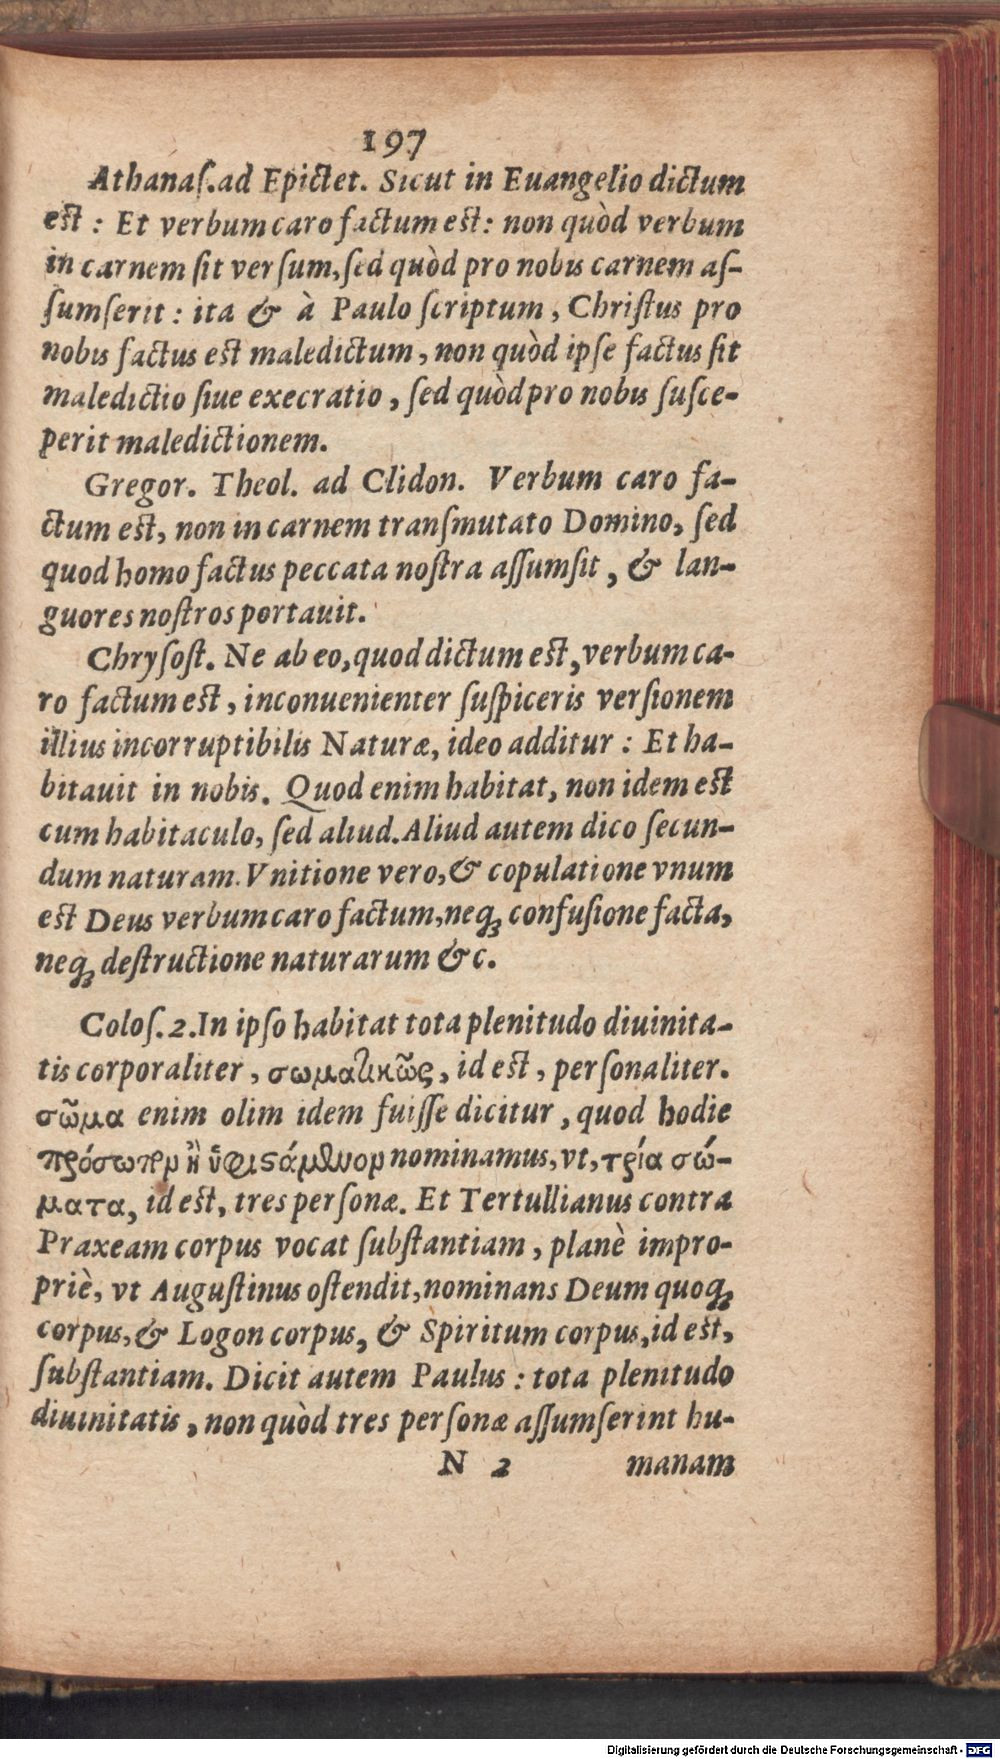 197
Athanaſ. ad Epictet. Sicut in Euangelio dictum
est : Et verbum caro factum est : non quòd verbum
in carnem ſit verſum, ſed quòd pro nobis carnem aſ-
ſumſerit : ita & à Paulo ſcriptum, Chriſtus pro
nobis factus est maledictum, non quòd ipſe factus ſit
maledictio ſiue execratio, ſed quòd pro nobis ſuſce-
perit maledictionem.
Gregor. Theol. ad Clidon. Verbum caro fa-
ctum est, non in carnem tranſmutato Domino, ſed
quod homo factus peccata noſtra aſſumſit, & lan-
guores noſtros portauit.
Chryſoſt. Ne ab eo, quod dictum est, verbum ca-
ro factum est, inconuenienter ſuſpiceris verſionem
illius incorruptibilis Naturæ, ideo additur : Et ha-
bitauit in nobis. Quod enim habitat, non idem est
cum habitaculo, ſed aliud. Aliud autem dico ſecun-
dum naturam. Vnitione vero, & copulatione vnum
est Deus verbum caro factum, neq; confuſione facta,
neq; deſtructione naturarum &c.
Coloſ. 2. In ipſo habitat tota plenitudo diuinita-
tis corporaliter, σωματικῶς, id est, perſonaliter.
σῶμα enim olim idem fuiſſe dicitur, quod hodie
πρόσωπον ἢ ὑφιστάμενον nominamus, vt, τρία σώ-
ματα, id est, tres perſonæ. Et Tertullianus contra
Praxeam corpus vocat ſubſtantiam, planè impro-
priè, vt Auguſtinus oſtendit, nominans Deum quoq;
corpus, & Logon corpus, & Spiritum corpus, id est,
ſubſtantiam. Dicit autem Paulus : tota plenitudo
diuinitatis, non quòd tres perſonæ aſſumſerint hu-
N 2 manam
Digitalisierung gefördert durch die Deutsche Forschungsgemeinschaft - DFG